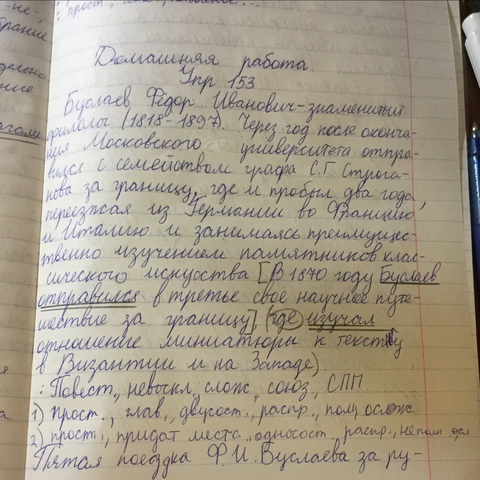 : прост.,
-не-,
брание
Домашняя работа.
Упр 153
Буслаев Фёдор Иванович-знаменитый
филолог (1818-1897). Через год после оконча-
ния Московского университета отпра-
вился с семейством графа С.Г. Строга-
нова за границу, где и пробыл два года,
переезжая из Германии во Францию
и Италию и занимаясь преимущес-
твенно изучением памятников клас-
сического искусства [В 1870 году Буслаев
отправился в третье своё научное путе-
шествие за границу] (где изучал
отношение миниатюры к тексту
в Византии и на Западе)
: Повест., невоскл, слож, союз., СПП.
1) прост., глав., двусост., распр., полн, ослож
2) прост., придат места, односост., распр., неполн
Пятая поездка Ф.И. Буслаева за ру-